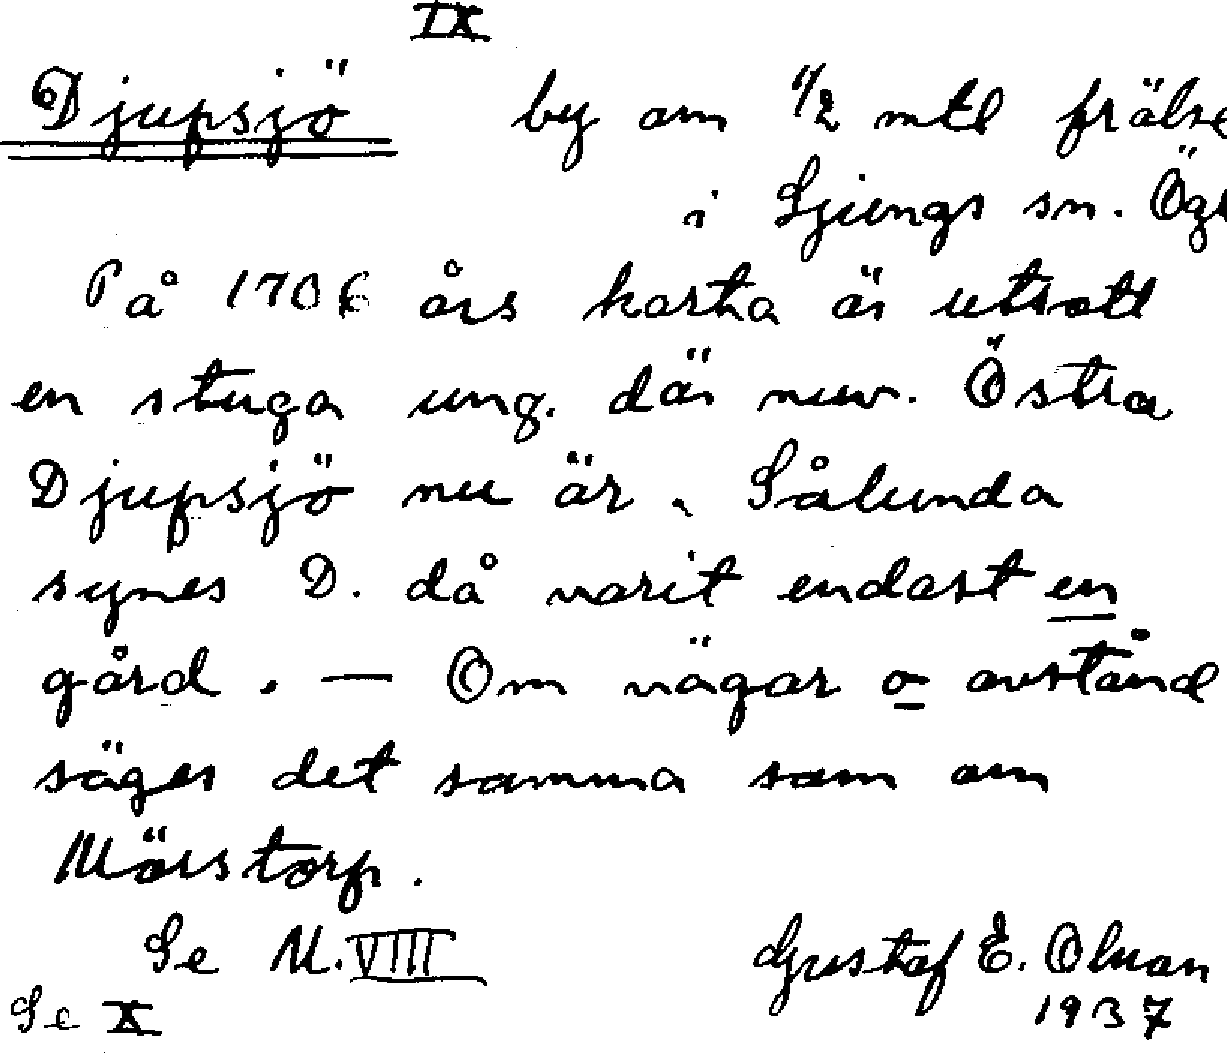 IX
Djupsjö by om 1/2 mtl frälse
i Ljungs sn. Ög
På 1706 års karta är utsatt
en stuga ung. där nuv. Östra
Djupsjö nu är. Sålunda
synes D. då varit endast en
gård. — Om vägar o avstånd
säges det samma som om
Mörstorp.
Se M. VIII Gustaf E. Olsson
Se X 1937